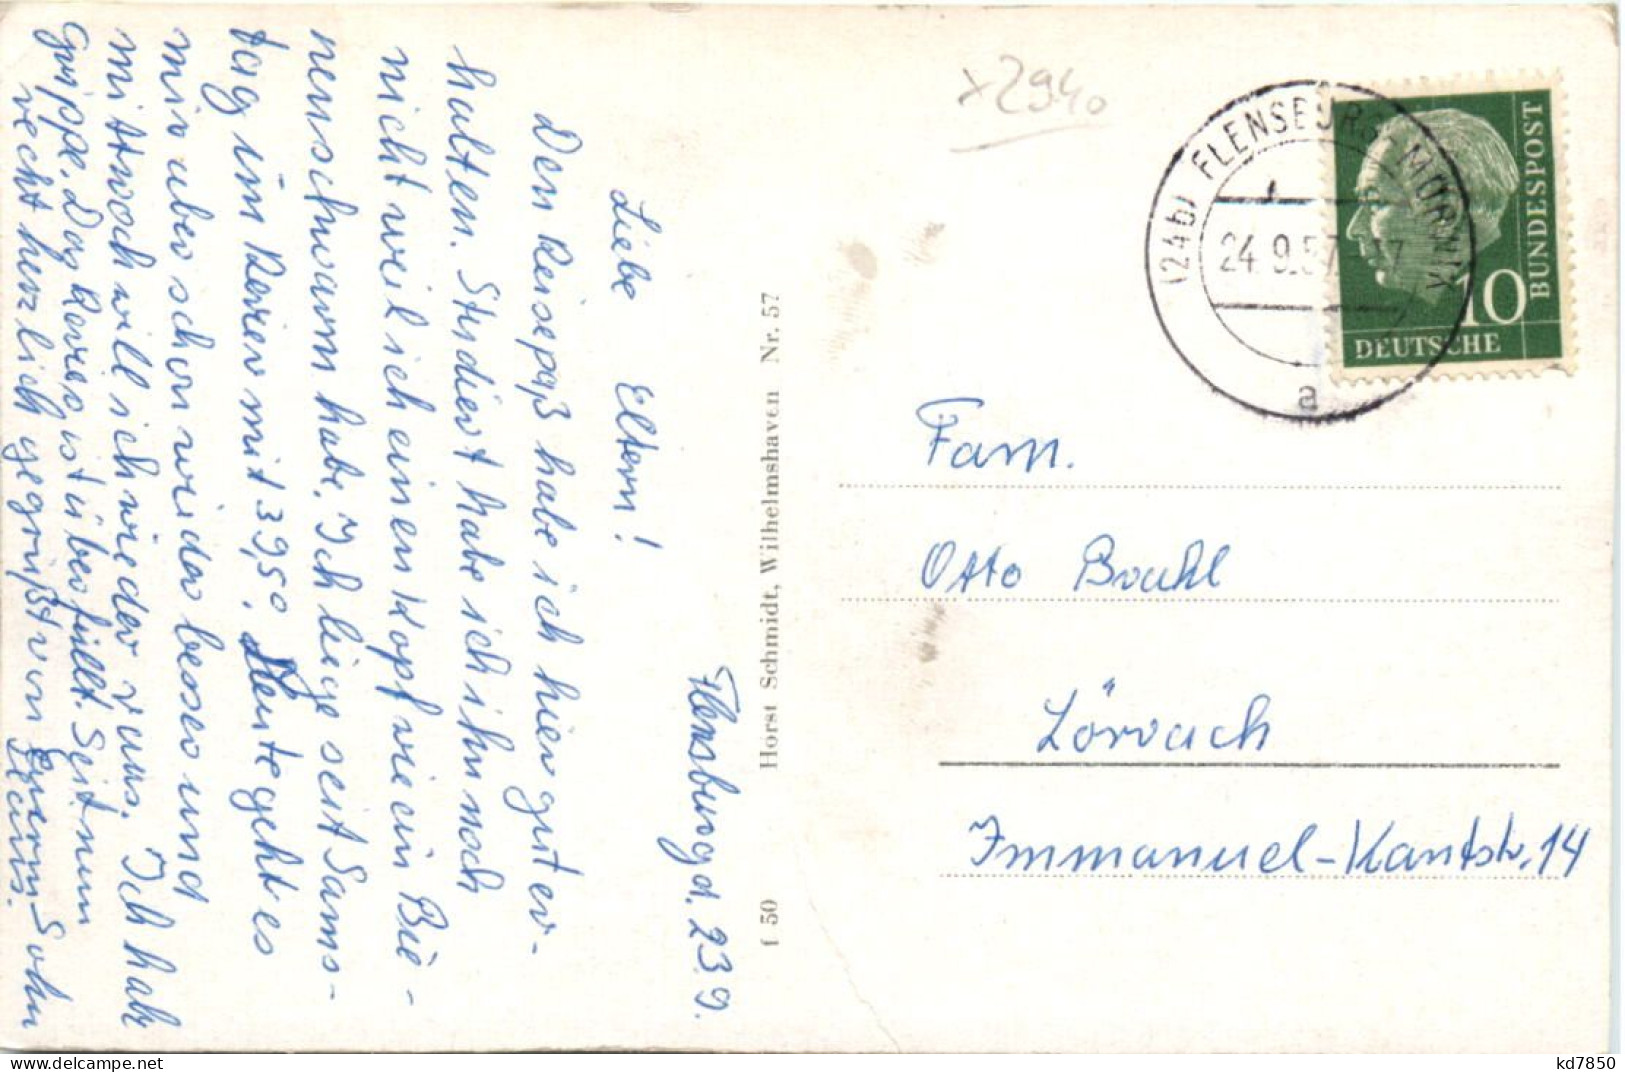 Flensburg d. 23.9.
Liebe Eltern!
Den Reisepaß habe ich hier gut er-
halten. Studiert habe ich ihn noch
nicht weil ich einen Kopf wie ein Bie-
nenschwarm habe. Ich liege seit Sams-
tag im Revier mit 39,5°. Heute geht es
mir aber schon wider besser und
mittwoch will ich wieder raus. Ich hab
Grippe. Das Revier ist überfüllt. Seit nun
recht herzlich gegrüßt von Euerm Sohn
f 50 Horst Schmidt, Wilhelmshaven Nr. 57
x2940
(24b) FLENSBURG-MÜRWIK
24.9.57.-17
a
10
DEUTSCHE
BUNDESPOST
Fam.
Otto Bruhl
Lörrach
Immanuel-Kantstr. 14
kd7850
www.delcampe.net